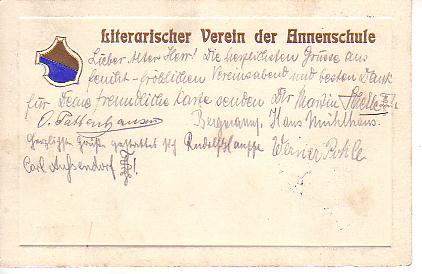 Literarischer Verein der Annenschule
Lieber Alter Herr! Die herzlichsten Grüsse aus
feucht-fröhlichen Vereinsabend und besten Dank
für Deine freundliche Karte senden Dir Martin
O. Tattenhausen Bergmann. Hans Mühlhaus.
Herzlichste Grüße gestattet sich Rudolf Werner
Carl